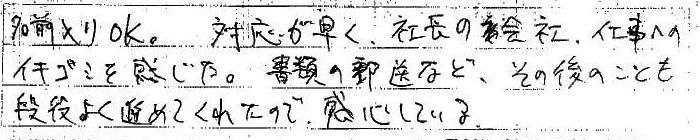 名前入りOK。 対応が早く、社長の 会社、仕事への
イキゴミを感じた。 書類の郵送など、その後のことも
段役よく進めてくれたので、感心している